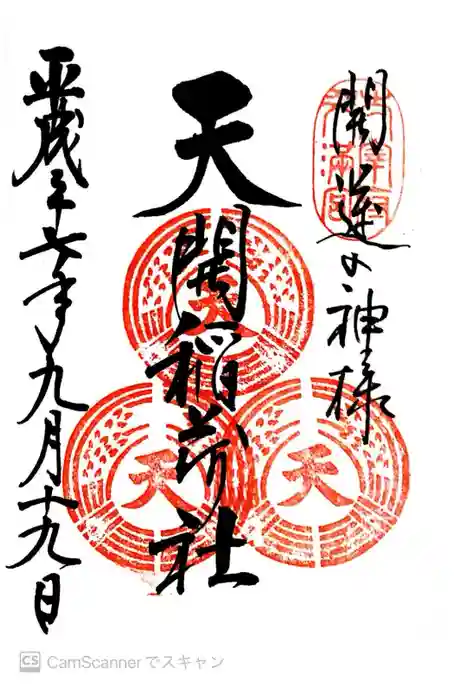 開運の神様
太宰府
天満宮
天開稲荷社
天
天
天
平成二十七年九月十九日
CS CamScannerでスキャン